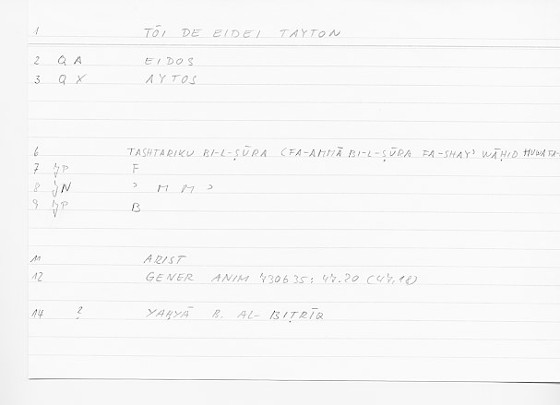 1 TŌI DE EIDEI TAYTON
2 Q A EIDOS
3 Q X AYTOS
6 TASHTARIKU BI-L-ṢŪRA (FA-AMMĀ BI-L-ṢŪRA FA-SHAYʾ WĀḤID HUWA
7 F
8 ʾ M M ʾ
9 B
11 ARIST
12 GENER ANIM 730B35; 47.20 (47,18)
14 2 YAḤYĀ B. AL-BIṬRĪQ